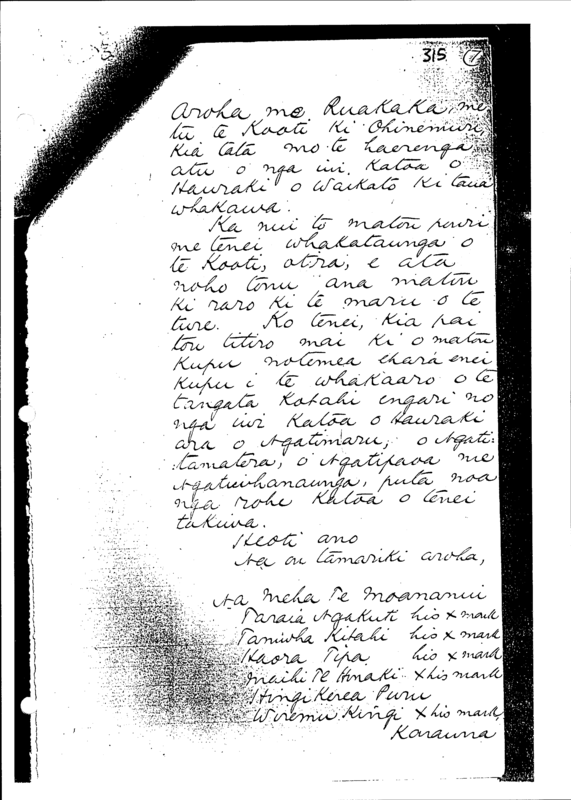 315 7
Aroha me Ruakaka, me
tu te Kooti ki Ohinemuri,
kia tata mo te haerenga
atu o nga iwi katoa o
Hauraki o Waikato ki taua
whakawa.
Ka nui to matou pouri
me tenei whakataunga o
te Kooti, otira, e ata
noho tonu ana matou
ki raro ki te maru o te
ture. Ko tenei, kia pai
tou titiro mai ki o matou
kupu notemea ehara enei
kupu i te whakaaro o te
tangata kotahi engari no
nga iwi katoa o Hauraki
ara o Ngatimaru, o Ngati:
:tamatera, o Ngatipaoa me
Ngatiwhanaunga, puta noa
nga rohe katoa o tenei
takiwa.
Heoti ano
Na ou tamariki aroha,
Na Meha Te Moananui
Taraia Ngakuti his x mark
Taniwha Kitahi his x mark
Haora Tipa his x mark
Maihi Te Hinaki x his mark
Hingi Kerea Puru
Wiremu Kingi x his mark
Karauna